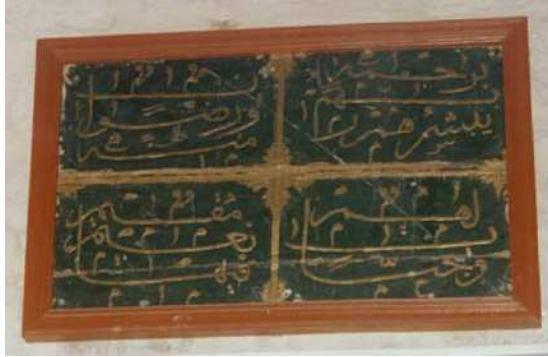 يبشرهم ربهم برحمة
منه ورضوان
وجنات لهم
فيها نعيم مقيم